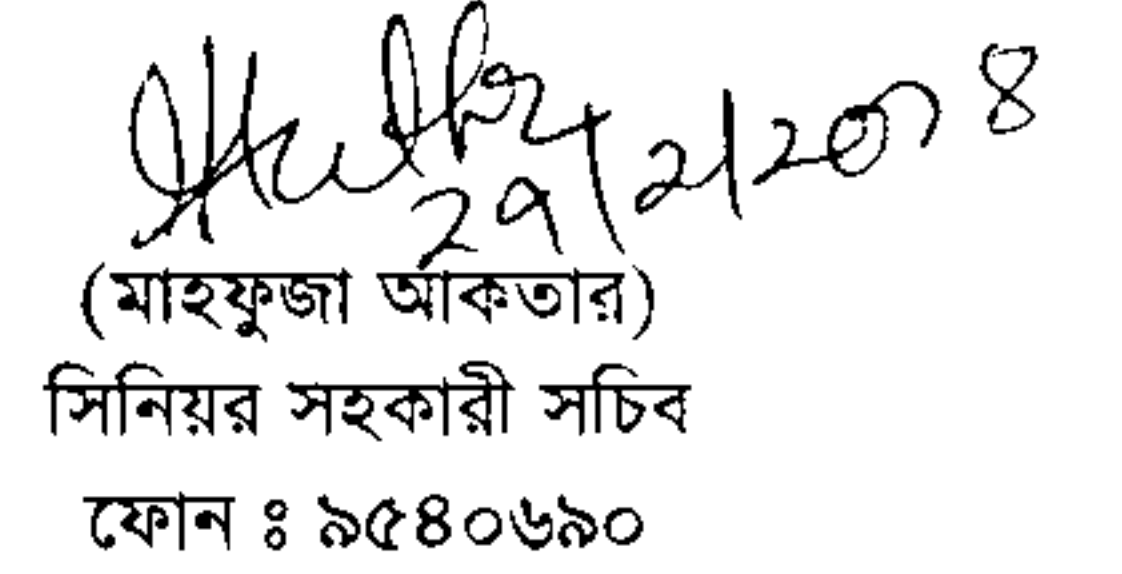 ২৭/২/২০১৪
(মাহফুজা আকতার)
সিনিয়র সহকারী সচিব
ফোন ঃ ৯৫৪০৬৯০